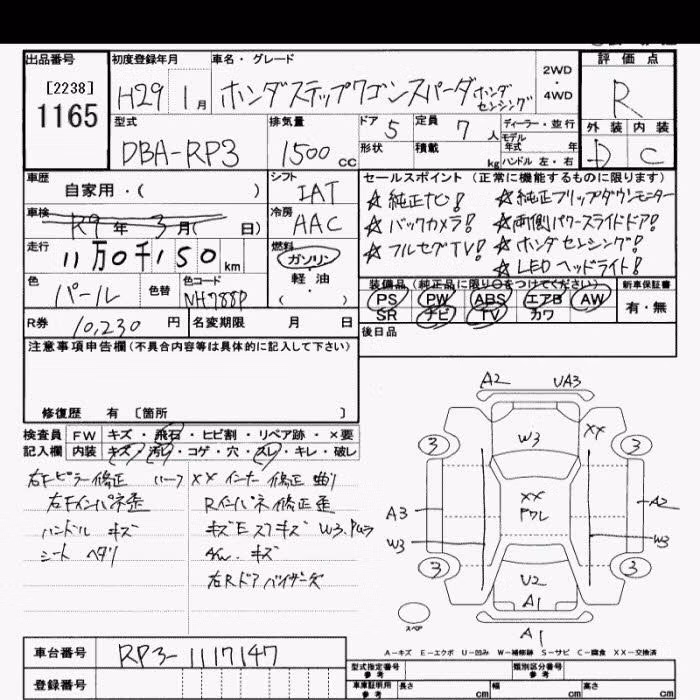 出品番号
[2238]
1165
初度登録年月
H29 1月
車名・グレード
ホンダステップワゴンスパーダ ホンダセンシング
2WD
・
4WD
評価点
R
外装 内装
D C
型式
DBA-RP3
排気量
1500 cc
ドア 5
形状
定員 7人
積載 kg
ディーラー・並行
モデル年式 年
ハンドル 左・右
車歴
自家用・( )
車検
R9年 3月( 日)
走行
11万0千150 km
色
パール
色替
色コード
NH788P
シフト
IAT
冷房
AAC
燃料
ガソリン
・
軽油
( )
セールスポイント (正常に機能するものに限ります)
☆純正ナビ! ☆純正フリップダウンモニター
☆バックカメラ! ☆両側パワースライドドア!
☆フルセグTV! ☆ホンダセンシング!
☆LEDヘッドライト!
装備品 (純正品に限り○をつけてください)
PS PW ABS エアB AW
SR ナビ TV カワ
新車保証書
有・無
後日品
R券 10,230円
名変期限 月 日
注意事項申告欄 (不具合内容等は具体的に記入して下さい)
修復歴 有 〔箇所 〕
検査員 FW キズ・飛石・ヒビ割・リペア跡・×要
記入欄 内装 キズ・汚レ・コゲ・穴・スレ・キレ・破レ
右Fピラー修正
右Fインパネ歪
ハンドル キズ
シート ヘタリ
XX インナー修正 曲り
Rインパネ修正歪
AW. キズ
右Rドアバイザーキズ
A2 UA3
3 W3 XX 3
A3 XX A2
W3 W3
3 U2 3
A1
スペア A1
A-キズ E-エクボ U-凹み W-補修跡 S-サビ C-腐食 XX-交換済
車台番号 RP3-1117147
登録番号
型式指定番号 参考
類別区分番号 参考
車庫証明用 参考 長さ cm 幅 cm 高さ cm